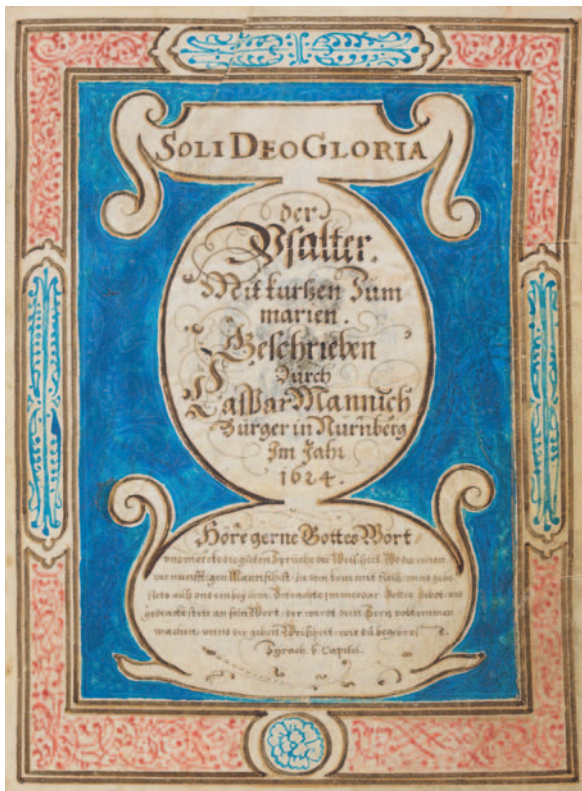 SOLI DEO GLORIA
der
Psalter.
Mit kurtzen Sum
marien.
Geschrieben
Durch
Caspar Mannich
Burger in Nürnberg
Im Jahr
1624.
Höre gerne Gottes Wort
vnd mercke die guten Sprüche der Weißheit Wo du einen
vernünfftigen Mann sihest, zu dem kom mit fleiß, vnnd gehe
stets auß vnd ein bey ihm. Betrachte immerdar Gottes Gebot, vnd
gedencke stets an sein Wort, der wirdt dein Hertz volkommen
machen, vnnd dir geben Weißheit, wie du begerest
Syrach 6. Capitel.